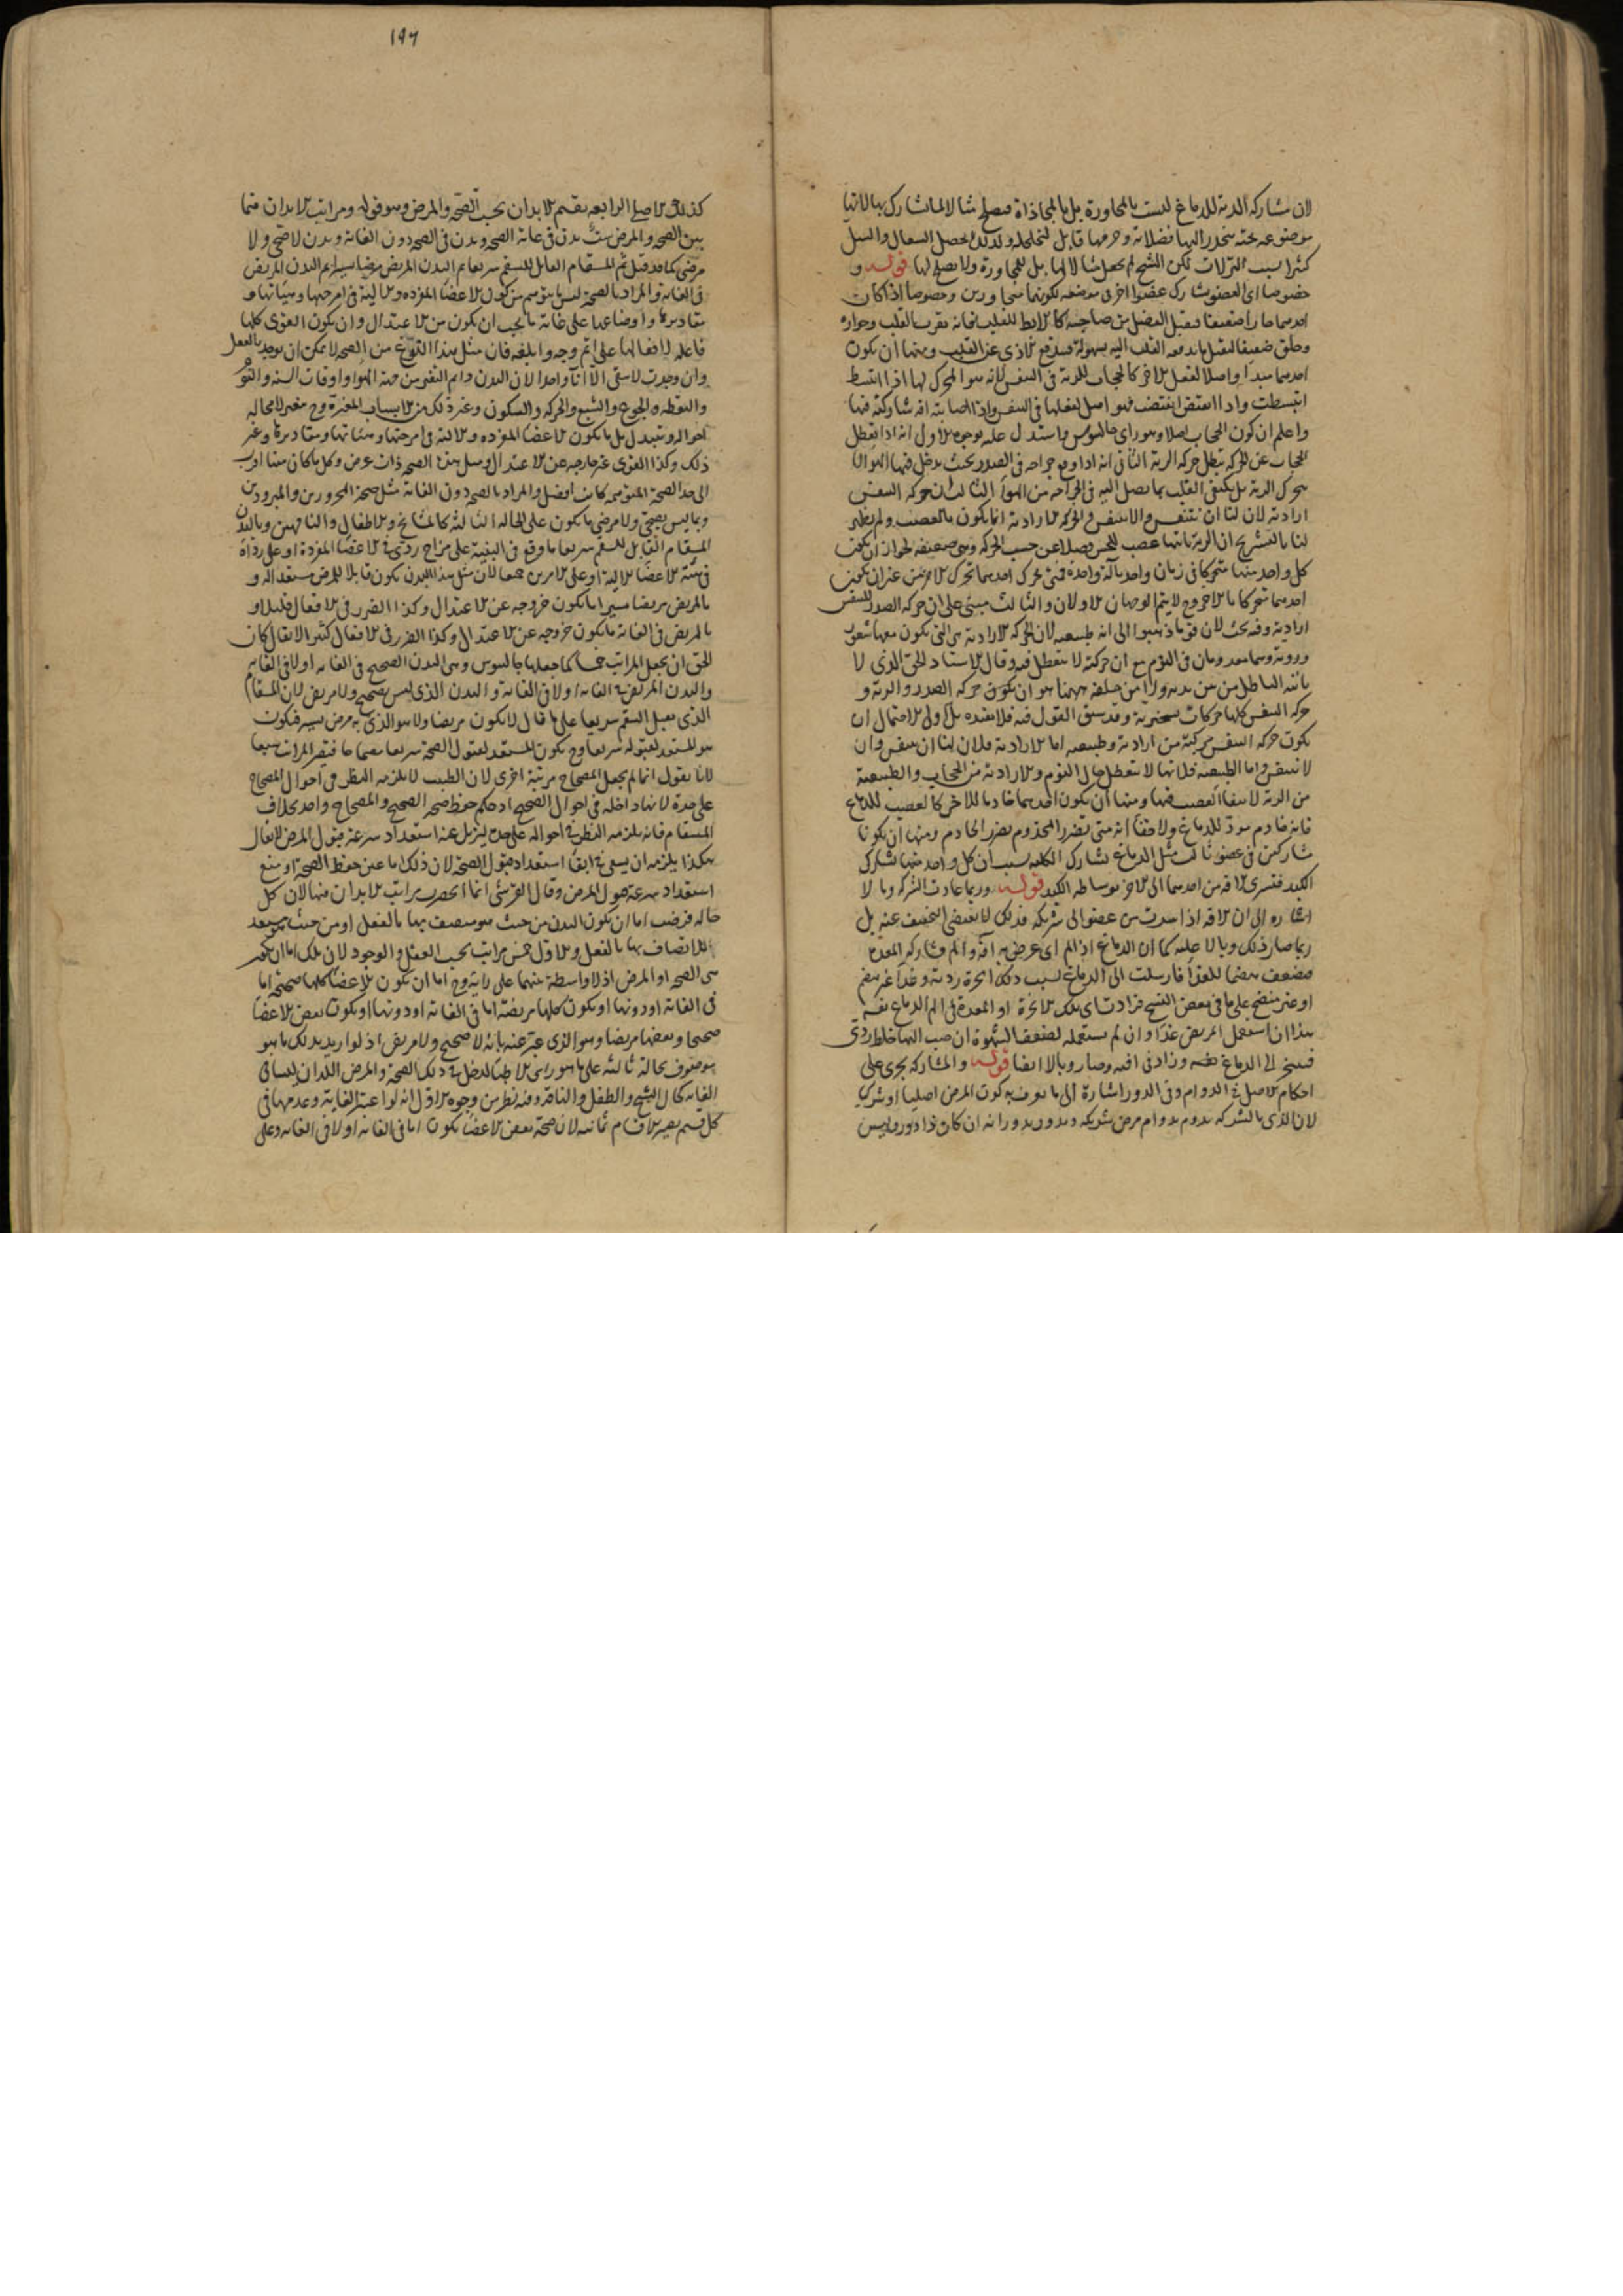 لان مشاركة الرية للدماغ ليست بالمجاورة بل بالمحاذاة فيصلح مثالا لما تشارك بها لانها
موضوعة تحته ينحدر اليها فضلاته وجرمها قابل لتخلخله ولذلك يحصل السعال والسل
كثيرا بسبب النزلات لكن الشيخ لم يجعل مثالا لها بل للمجاورة ولا يصلح لها قوله و
خصوصا اى العضو يشارك عضوا اخر فى موضعه لكونهما متجاورين وخصوصا اذا كان
احدهما حارا ضعيفا فيقبل الفضل من صاحبه كالابط للقلب فانه بقرب القلب وجواره
وخلق ضعيفا ليقبل ما يدفعه القلب اليه بسهولة فيندفع الاذى عن القلب ومنها ان يكون
احدهما مبدا واصلا لفعل الاخر كالحجاب للرية فى التنفس لانه هو المحرك لها اذا انبسط
انبسطت واذا انقبض انقبضت فهو اصل لفعلها فى التنفس واذا اصابته افة شاركته فيها
واعلم ان كون الحجاب اصلا وهو راى جالينوس واستدل عليه بوجوه الاول انه اذا تعطل
الحجاب عن الحركة تبطل حركة الرية الثانى انه اذا وقع جراحة فى الصدر بحيث يدخل فيها الهواء لا
يتحرك الرية بل يكتفى القلب بما يصل اليه فى الجراحة من الهواء الثالث ان حركة التنفس
ارادية لان لنا ان نتنفس والا نتنفس والحركة الارادية انما يكون بالعصب ولم يظهر
لنا بالتشريح ان الرية ياتيها عصب للحس فضلا عن حسب الحركة وهى ضعيفة لجواز ان يكون
كل واحد منهما متحركا فى زمان واحد بالة واحدة فمتى تحرك احدهما تحرك الاخر من غير ان يكون
احدهما متحركا بالاخر وح لا يتم الوجهان الاولان والثالث مبنى على ان حركة الصدر للتنفس
ارادية وفيه بحث لان قوما ذهبوا الى انه طبيعية لان الحركة الارادية هى التى يكون معها شعور
وروية وهما معدومان فى النوم مع ان حركته لا يتعطل فيه وقال الاستاد الحق الذى لا
ياتيه الباطل من بين يديه ولا من خلفه ههنا هو ان يكون حركة الصدر والرية و
حركة التنفس كلها حركات تسخيرية وقد سبق القول فيه فلا نعيده بل الاولى الاحتمال ان
يكون حركة التنفس مركبة من ارادية وطبيعية اما الارادية فلان لنا ان نتنفس وان
لا نتنفس واما الطبيعية فلانها لا تتعطل حال النوم والارادية من الحجاب والطبيعية
من الرية لانتفاء العصب فيها ومنها ان يكون احدهما خادما للاخر كالعصب للدماغ
فانه خادم مؤد للدماغ ولا خفا انه متى تضرر المخدوم تضرر الخادم ومنها ان يكونا
مشاركين فى عضو ثالث مثل الدماغ تشارك الكلية بسبب ان كل واحد منهما تشارك
الكبد فتسرى الافة من احدهما الى الاخر بوساطة الكبد قوله وربما عادت الشركة وبالا
اشارة الى ان الافة اذا سرت من عضو الى شريكه فذلك لا يقتضى التخفيف عنه بل
ربما صار ذلك وبالا عليه كما ان الدماغ اذا الم اى عرض به آفة والم فشاركه المعدة
فضعف هضمها للغذاء فارسلت الى الدماغ بسبب ذلك ابخرة ردية وغذاء غير منهضم
او غير منضج على ما فى بعض النسخ فزادت اى تلك الابخرة او المعدة فى الم الدماغ نفسه
هذا ان استعمل المريض غذاء وان لم يستعمله لضعف الشهوة انصب اليها خلط ردى
فيبخر الى الدماغ نفسه وزاد فى افته وصار وبالا ايضا قوله والمشاركة يجرى على
احكام الاصل فى الدوام وفى الدور اشارة الى ما يعرف به كون المرض اصليا او شركيا
لان الذى بالشركة يدوم بدوام مرض شريكه ويدور بدورانه ان كان ذا دور وليس
١٩٦
كذلك الاصلى الرابعة تقسيم الابدان بحسب الصحة والمرض وهو قوله ومراتب الابدان فيما
بين الصحة والمرض ست بدن فى غاية الصحة وبدن فى الصحة دون الغاية وبدن لا صحى ولا
مرضى كما قد قيل ثم المسقام القابل للسقم سريعا ثم البدن المريض مرضا يسيرا ثم البدن المريض
فى الغاية والمراد بالصحة ليس ما يتوهم من كون الاعضاء المفردة والالية فى امزجتها وهيئاتها و
مقاديرها واوضاعها على غاية ما يجب ان يكون من الاعتدال وان يكون القوى كلها
فاعلة لافعالها على اتم وجه وابلغه فان مثل هذا النوع من الصحة لا يمكن ان توجد بالفعل
وان وجدت لا تبقى الا آنا واحدا لان البدن دايم التغير من جهة الهواء واوقات السنة والنوم
واليقظة والجوع والشبع والحركة والسكون وغير ذلك من الاسباب المغيرة وح يتغير لا محالة
احواله وتتبدل بل ما يكون الاعضاء المفردة والالية فى امزجتها وهيئاتها ومقاديرها وغير
ذلك وكذا القوى غير خارجة عن الاعتدال ومثل هذه الصحة ذات عرض وكل ما كان منها اقرب
الى حد الصحة المتوهمة كانت افضل والمراد بالصحة دون الغاية مثل صحة المحرورين والمبرودين
وبما ليس بصحى ولا مرضى ما يكون على الحالة الثالثة كالمشايخ والاطفال والناقهين وبالبدن
المسقام القابل للسقم سريعا ما وقع فى البنية على مزاج ردى فى الاعضاء المفردة او على رداءة
فى هيئة الاعضاء الالية او على الامرين جميعا لان مثل هذا البدن يكون قابلا للمرض مستعدا له و
بالمريض مرضا يسيرا ما يكون خروجه عن الاعتدال وكذا الضرر فى الافعال قليلا و
بالمريض فى الغاية ما يكون خروجه عن الاعتدال وكذا الضرر فى الافعال كثيرا لا يقال كان
الحق ان يجعل المراتب خمسا كما جعلها جالينوس وهى البدن الصحيح فى الغاية او لا فى الغاية
والبدن المريض فى الغاية او لا فى الغاية والبدن الذى ليس بصحيح ولا مريض لان المسقام
الذى يقبل السقم سريعا على ما قال لا يكون مريضا ولا هو الذى به مرض يسير فيكون
هو المستعد لقبوله سريعا وح يكون المستعد لقبول الصحة سريعا مصحاحا فيصير المراتب سبعا
لانا نقول انما لم يجعل المصحاح مرتبة اخرى لان الطبيب لا يلزمه النظر فى احوال المصحاح
على حدة لانها داخلة فى احوال الصحيح اذ حكم حفظ صحة الصحيح والمصحاح واحد بخلاف
المسقام فانه يلزمه النظر فى احواله على حدة ليزيل عنه استعداد سرعة قبول المرض لا يقال
هكذا يلزمه ان يسعى فى ابقاء استعداد قبول الصحة لان ذلك اما عين حفظ الصحة او منع
استعداد سرعة قبول المرض وقال القرشى انما انحصرت مراتب الابدان فيها لان كل
حالة فرضت اما ان يكون البدن من حيث هو متصف بها بالفعل او من حيث هو مستعد
للاتصاف بها بالفعل والاول خمس مراتب بحسب العقل والوجود لان تلك اما ان يكون
هى الصحة او المرض اذ لا واسطة بينهما على رأيه وح اما ان يكون الاعضاء كلها صحيحة اما
فى الغاية او دونها او يكون كلها مريضة اما فى الغاية او دونها او يكون بعض الاعضاء
صحيحا وبعضها مريضا وهو الذى عبر عنه بانه لا صحيح ولا مريض اذ لو اريد بذلك ما هو
موصوف بحالة ثالثة على ما هو راى الاطباء لدخل فى ذلك الصحة والمرض اللذان ليسا فى
الغاية كحال الشيخ والطفل والناقه وفيه نظر من وجوه الاول انه لو اعتبر الغاية وعدمها فى
كل قسم يصير الاقسام ثمانية لان صحة بعض الاعضاء يكون اما فى الغاية او لا فى الغاية وعلى